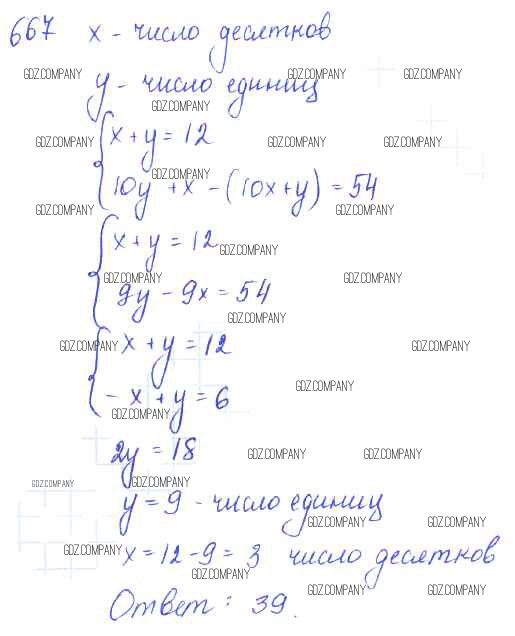 667 x - число десятков
GDZ.COMPANY GDZ.COMPANY GDZ.COMPANY
y - число единиц
GDZ.COMPANY
x + y = 12
GDZ.COMPANY GDZ.COMPANY GDZ.COMPANY
GDZ.COMPANY
10y + x - (10x + y) = 54
GDZ.COMPANY GDZ.COMPANY
x + y = 12
GDZ.COMPANY
GDZ.COMPANY GDZ.COMPANY
9y - 9x = 54
GDZ.COMPANY
x + y = 12
GDZ.COMPANY GDZ.COMPANY
GDZ.COMPANY
- x + y = 6
GDZ.COMPANY
2y = 18
GDZ.COMPANY GDZ.COMPANY
GDZ.COMPANY GDZ.COMPANY
y = 9 - число единиц
GDZ.COMPANY GDZ.COMPANY
x = 12 - 9 = 3 число десятков
GDZ.COMPANY
GDZ.COMPANY
GDZ.COMPANY GDZ.COMPANY
Ответ: 39.